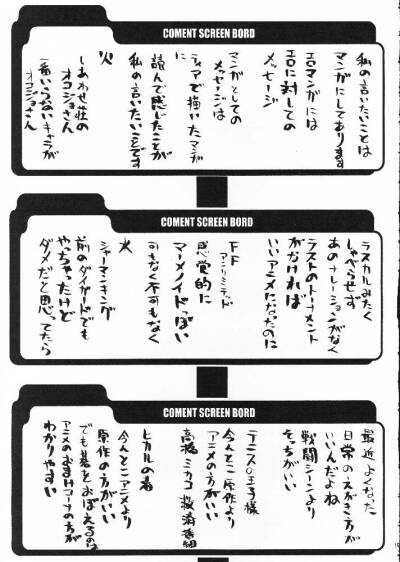 COMENT SCREEN BORD
私の言いたいことは
マンガにしております
エロマンガには
エロに対しての
メッセージ
マンガとしての
メッセージは
ティアで描いたマンガ
に
読んで感じたことが
私の言いたいことです
火
しあわせ荘の
オコジョさん
一番いらないキャラが
オコジョさん
COMENT SCREEN BORD
ラスカルみたく
しゃべらせず
あのナレーションがなく
ラストのトーナメント
がなければ
いいアニメになったのに
FF
アンリミテッド
感覚的に
マーメノイドっぽい
可もなく不可もなく
水
シャーマンキング
前のダイガードでも
やっちゃったけど
ダメだと思ってたら
COMENT SCREEN BORD
最近よくなった
日常のえがき方が
いいんだよね
戦闘シーンより
そっちがいい
テニスの王子様
今んとこ原作より
アニメの方がいい
高橋ミカコ救済番組
ヒカルの碁
今んとこアニメより
原作の方がいい
でも碁をおぼえるのは
アニメのおまけコーナの方が
わかりやすい